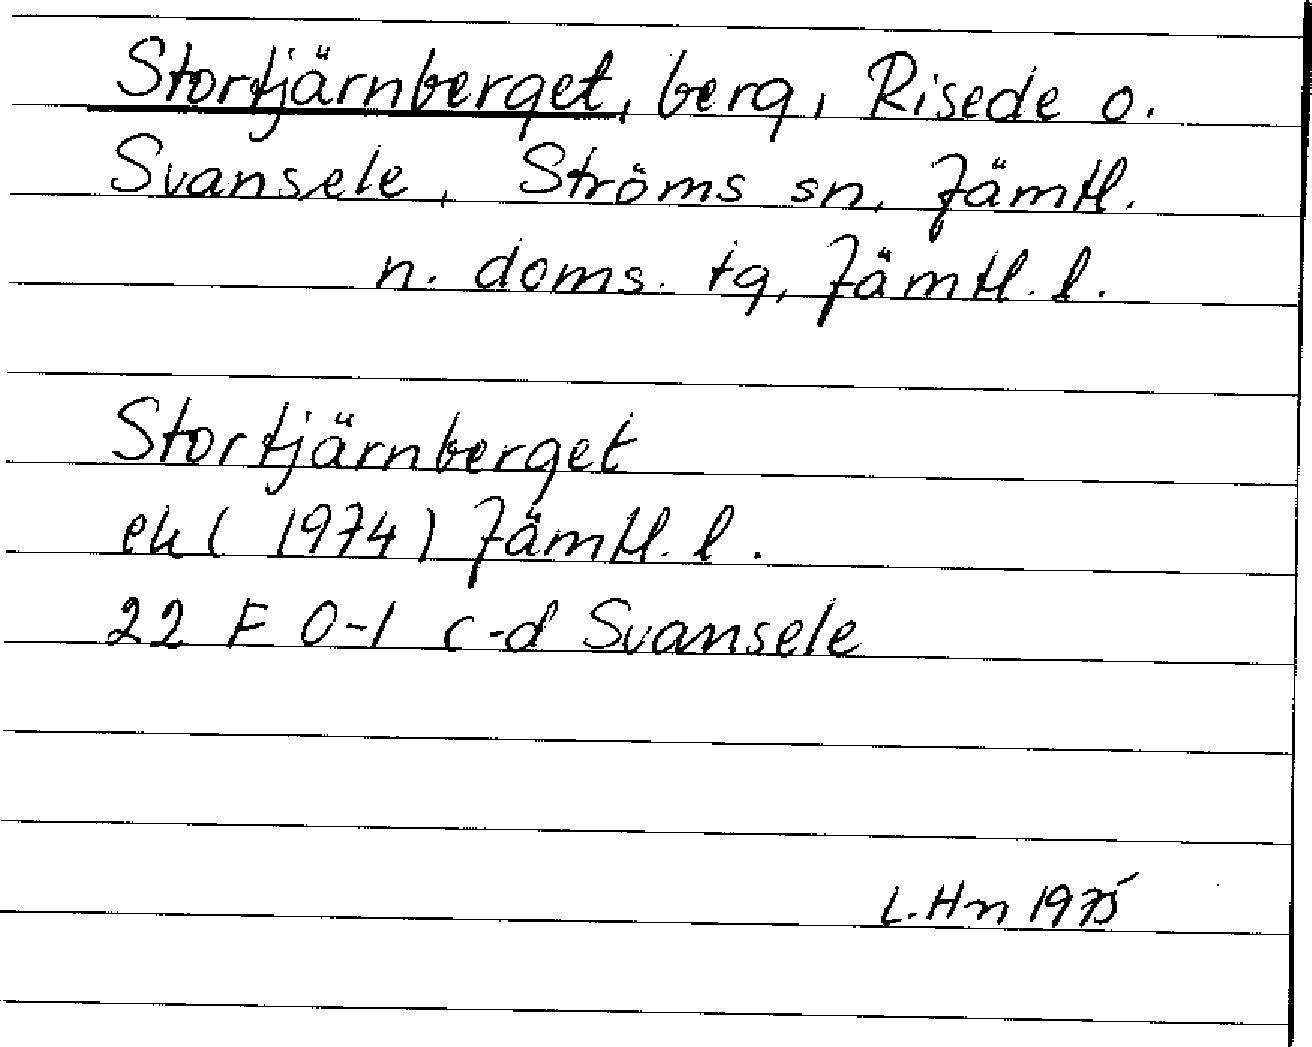 Stortjärnberget, berg, Risede o.
Svansele, Ströms sn, Jämtl.
n. doms. tg, Jämtl. l.
Stortjärnberget
ek (1974) Jämtl. l.
22 F 0-1 c-d Svansele
L. Hn 1975